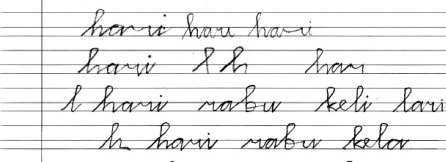 hari hau hari
hari l h han
l hari rabu keli lari
h hari rabu kela